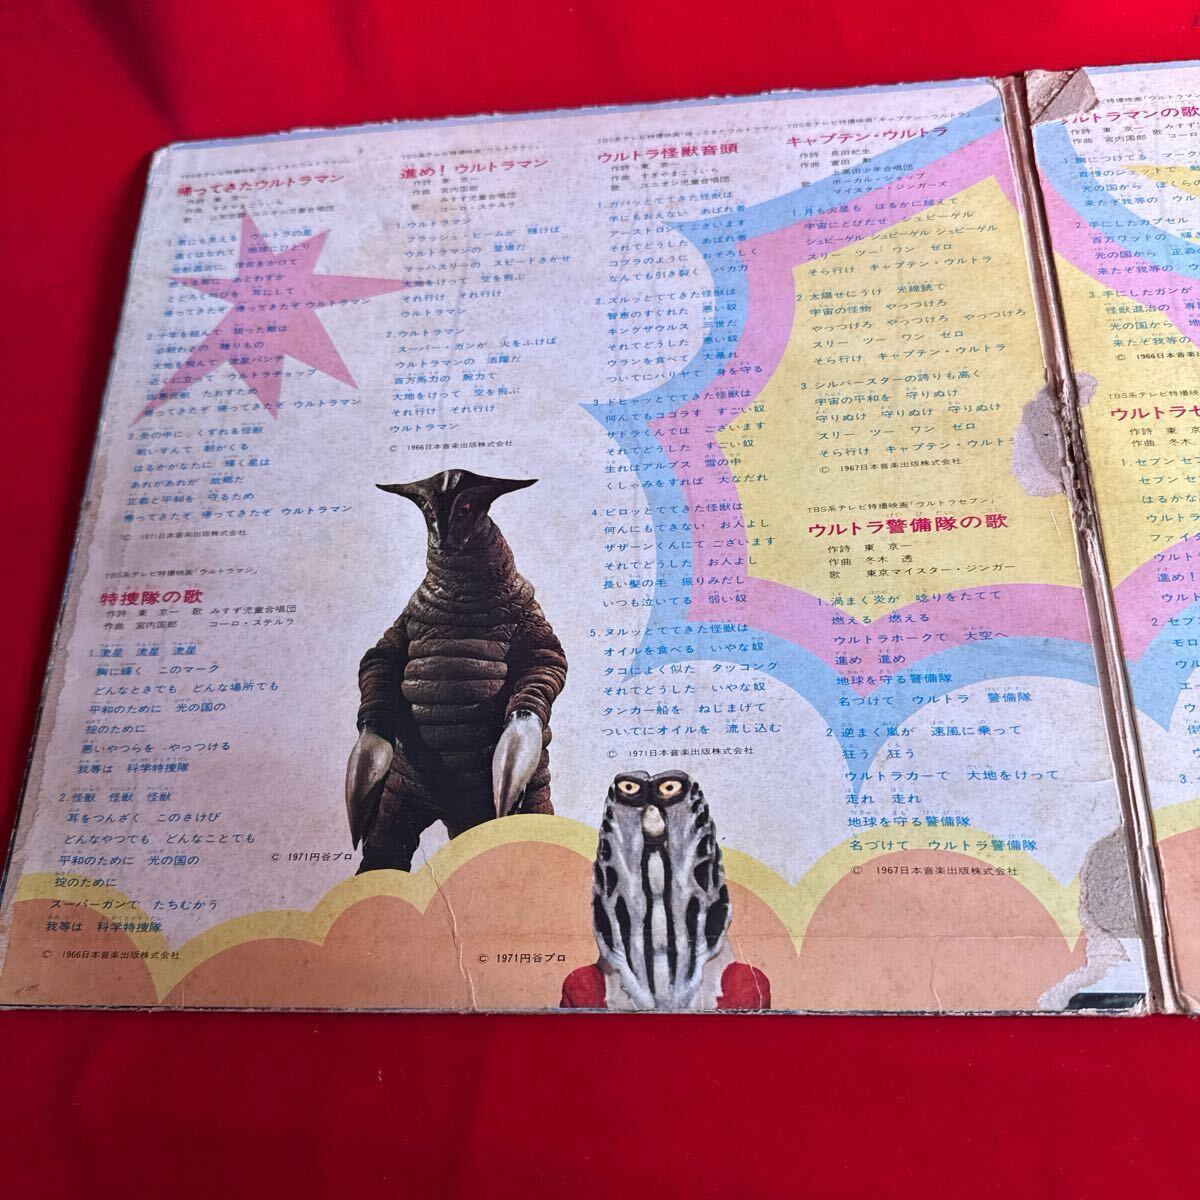 TBS系テレビ特撮映画「帰ってきたウルトラマン」
帰ってきたウルトラマン
作詩 東 京一
作曲 すぎやまこういち
1.君にも見える ウルトラの星
遠くはなれて 地球にひとり
怪獣退治に 使命をかけて
燃える街に あとわずか
とどろく叫びを 耳にして
帰ってきたぞ 帰ってきたぞ ウルトラマン
2.十字を組んで 狙った敵は
必殺わざの 贈りもの
大地を飛んで 流星パンチ
近くに立って ウルトラチョップ
凶悪怪獣 たおすため
帰ってきたぞ 帰ってきたぞ ウルトラマン
3.炎の中に くずれる怪獣
戦いすんで 朝がくる
はるかかなたに 輝く星は
あれがあれが 故郷だ
正義と平和を 守るため
帰ってきたぞ 帰ってきたぞ ウルトラマン
© 1971日本音楽出版株式会社
TBS系テレビ特撮映画「ウルトラマン」
特捜隊の歌
作詩 東 京一 歌 みすず児童合唱団
作曲 宮内国郎 コーロ・ステルラ
1.流星 流星 流星
胸に輝く このマーク
どんなときても どんな場所でも
平和のために 光の国の
掟のために
悪いやつらを やっつける
我等は 科学特捜隊
2.怪獣 怪獣 怪獣
耳をつんざく このさけび
どんなやつでも どんなことでも
平和のために 光の国の
掟のために
スーパーガンで たちむかう
我等は 科学特捜隊
© 1966日本音楽出版株式会社
TBS系テレビ特撮映画「ウルトラマン」
進め! ウルトラマン
作詩 東 京一
作曲 宮内国郎
歌 みすず児童合唱団
コーロ・ステルラ
1.ウルトラマン
フラッシュ・ビームが 輝けば
ウルトラマンの 登場だ
マッハスリーの スピードきかせ
大地をけって 空を飛ぶ
それ行け それ行け
ウルトラマン
2.ウルトラマン
スーパー・ガンが 火をふけば
ウルトラマンの 活躍だ
百万馬力の 腕力て
大地をけって 空を飛ぶ
それ行け それ行け
ウルトラマン
© 1966日本音楽出版株式会社
© 1971円谷プロ
TBS系テレビ特撮映画「帰ってきたウルトラマン」
ウルトラ怪獣音頭
作詩 東 京一
作曲 すぎやまこういち
歌 ユニオン児童合唱団
1.ガバッとでてきた怪獣は
手にもおえない あばれ者
アーストロンてございます
それてどうした あばれ者
コブラのように おそろしく
なんても引き裂く バカ力
2.ズルッとでてきた怪獣は
智恵のすぐれた 悪い奴
キングザウルス 三世だ
それてどうした 悪い奴
ウランを食べて 大暴れ
ついてにバリヤて 身を守る
3.ドヒャッとてきた怪獣は
何んてもコゴラす すごい奴
サドラくんては ございます
それてどうした すごい奴
生れはアルプス 雪の中
くしゃみをすれば 大なだれ
4.ピロッとてきた怪獣は
何んにもできない お人よし
ザザーンくんにて ございます
それてどうした お人よし
長い髪の毛 振りみだし
いつも泣いてる 弱い奴
5.ヌルッとてきた怪獣は
オイルを食べる いやな奴
タコによく似た タッコング
それてどうした いやな奴
タンカー船を ねじまげて
ついてにオイルを 流し込む
© 1971日本音楽出版株式会社
© 1971円谷プロ
TBS系テレビ特撮映画「キャプテン・ウルトラ」
キャプテン・ウルトラ
作詩 長田紀生
作曲 富田 勲
歌 上高田少年合唱団
ボーカル・ショップ
マイスター・ジンガーズ
1.月も火星も はるかに越えて
宇宙にとびだせ シュピーゲル
シュピーゲル シュピーゲル シュピーゲル
スリー ツー ワン ゼロ
そら行け キャプテン・ウルトラ
2.太陽せにうけ 光線銃て
宇宙の怪物 やっつけろ
やっつけろ やっつけろ やっつけろ
スリー ツー ワン ゼロ
そら行け キャプテン・ウルトラ
3.シルバースターの誇りも高く
宇宙の平和を 守りぬけ
守りぬけ 守りぬけ 守りぬけ
スリー ツー ワン ゼロ
そら行け キャプテン・ウルトラ
© 1967日本音楽出版株式会社
TBS系テレビ特撮映画「ウルトラセブン」
ウルトラ警備隊の歌
作詩 東 京一
作曲 冬木 透
歌 東京マイスター・ジンガー
1.渦まく炎が 唸りをたてて
燃える 燃える
ウルトラホークで 大空へ
進め 進め
地球を守る警備隊
名づけて ウルトラ 警備隊
2.逆まく嵐が 速風に乗って
狂う 狂う
ウルトラカーて 大地をけって
走れ 走れ
地球を守る警備隊
名づけて ウルトラ警備隊
© 1967日本音楽出版株式会社
ルトラマンの歌
作詩 東 京一 歌 みすず
作曲 宮内国郎 コーロ
胸につけてる マーク
自慢のジェットで 敵
光の国から ぼくらの
来たぞ我等の ウル
2.手にしたカプセル
百万ワットの
光の国から 正義の
来たぞ我等の
3.手にしたガンが
怪獣退治の 専
光の国から 地
来たぞ我等の
© 1966日本音楽
TBS系テレビ特撮
ウルトラセ
作詩 東 京
作曲 冬木
1.セブン セブ
セブン セブ
はるかな
ウルトラ
ファイタ
ウルト
進め!
ウルト
2.セブ
モロ
ウル
エ
ウ
倒
ウ
3.